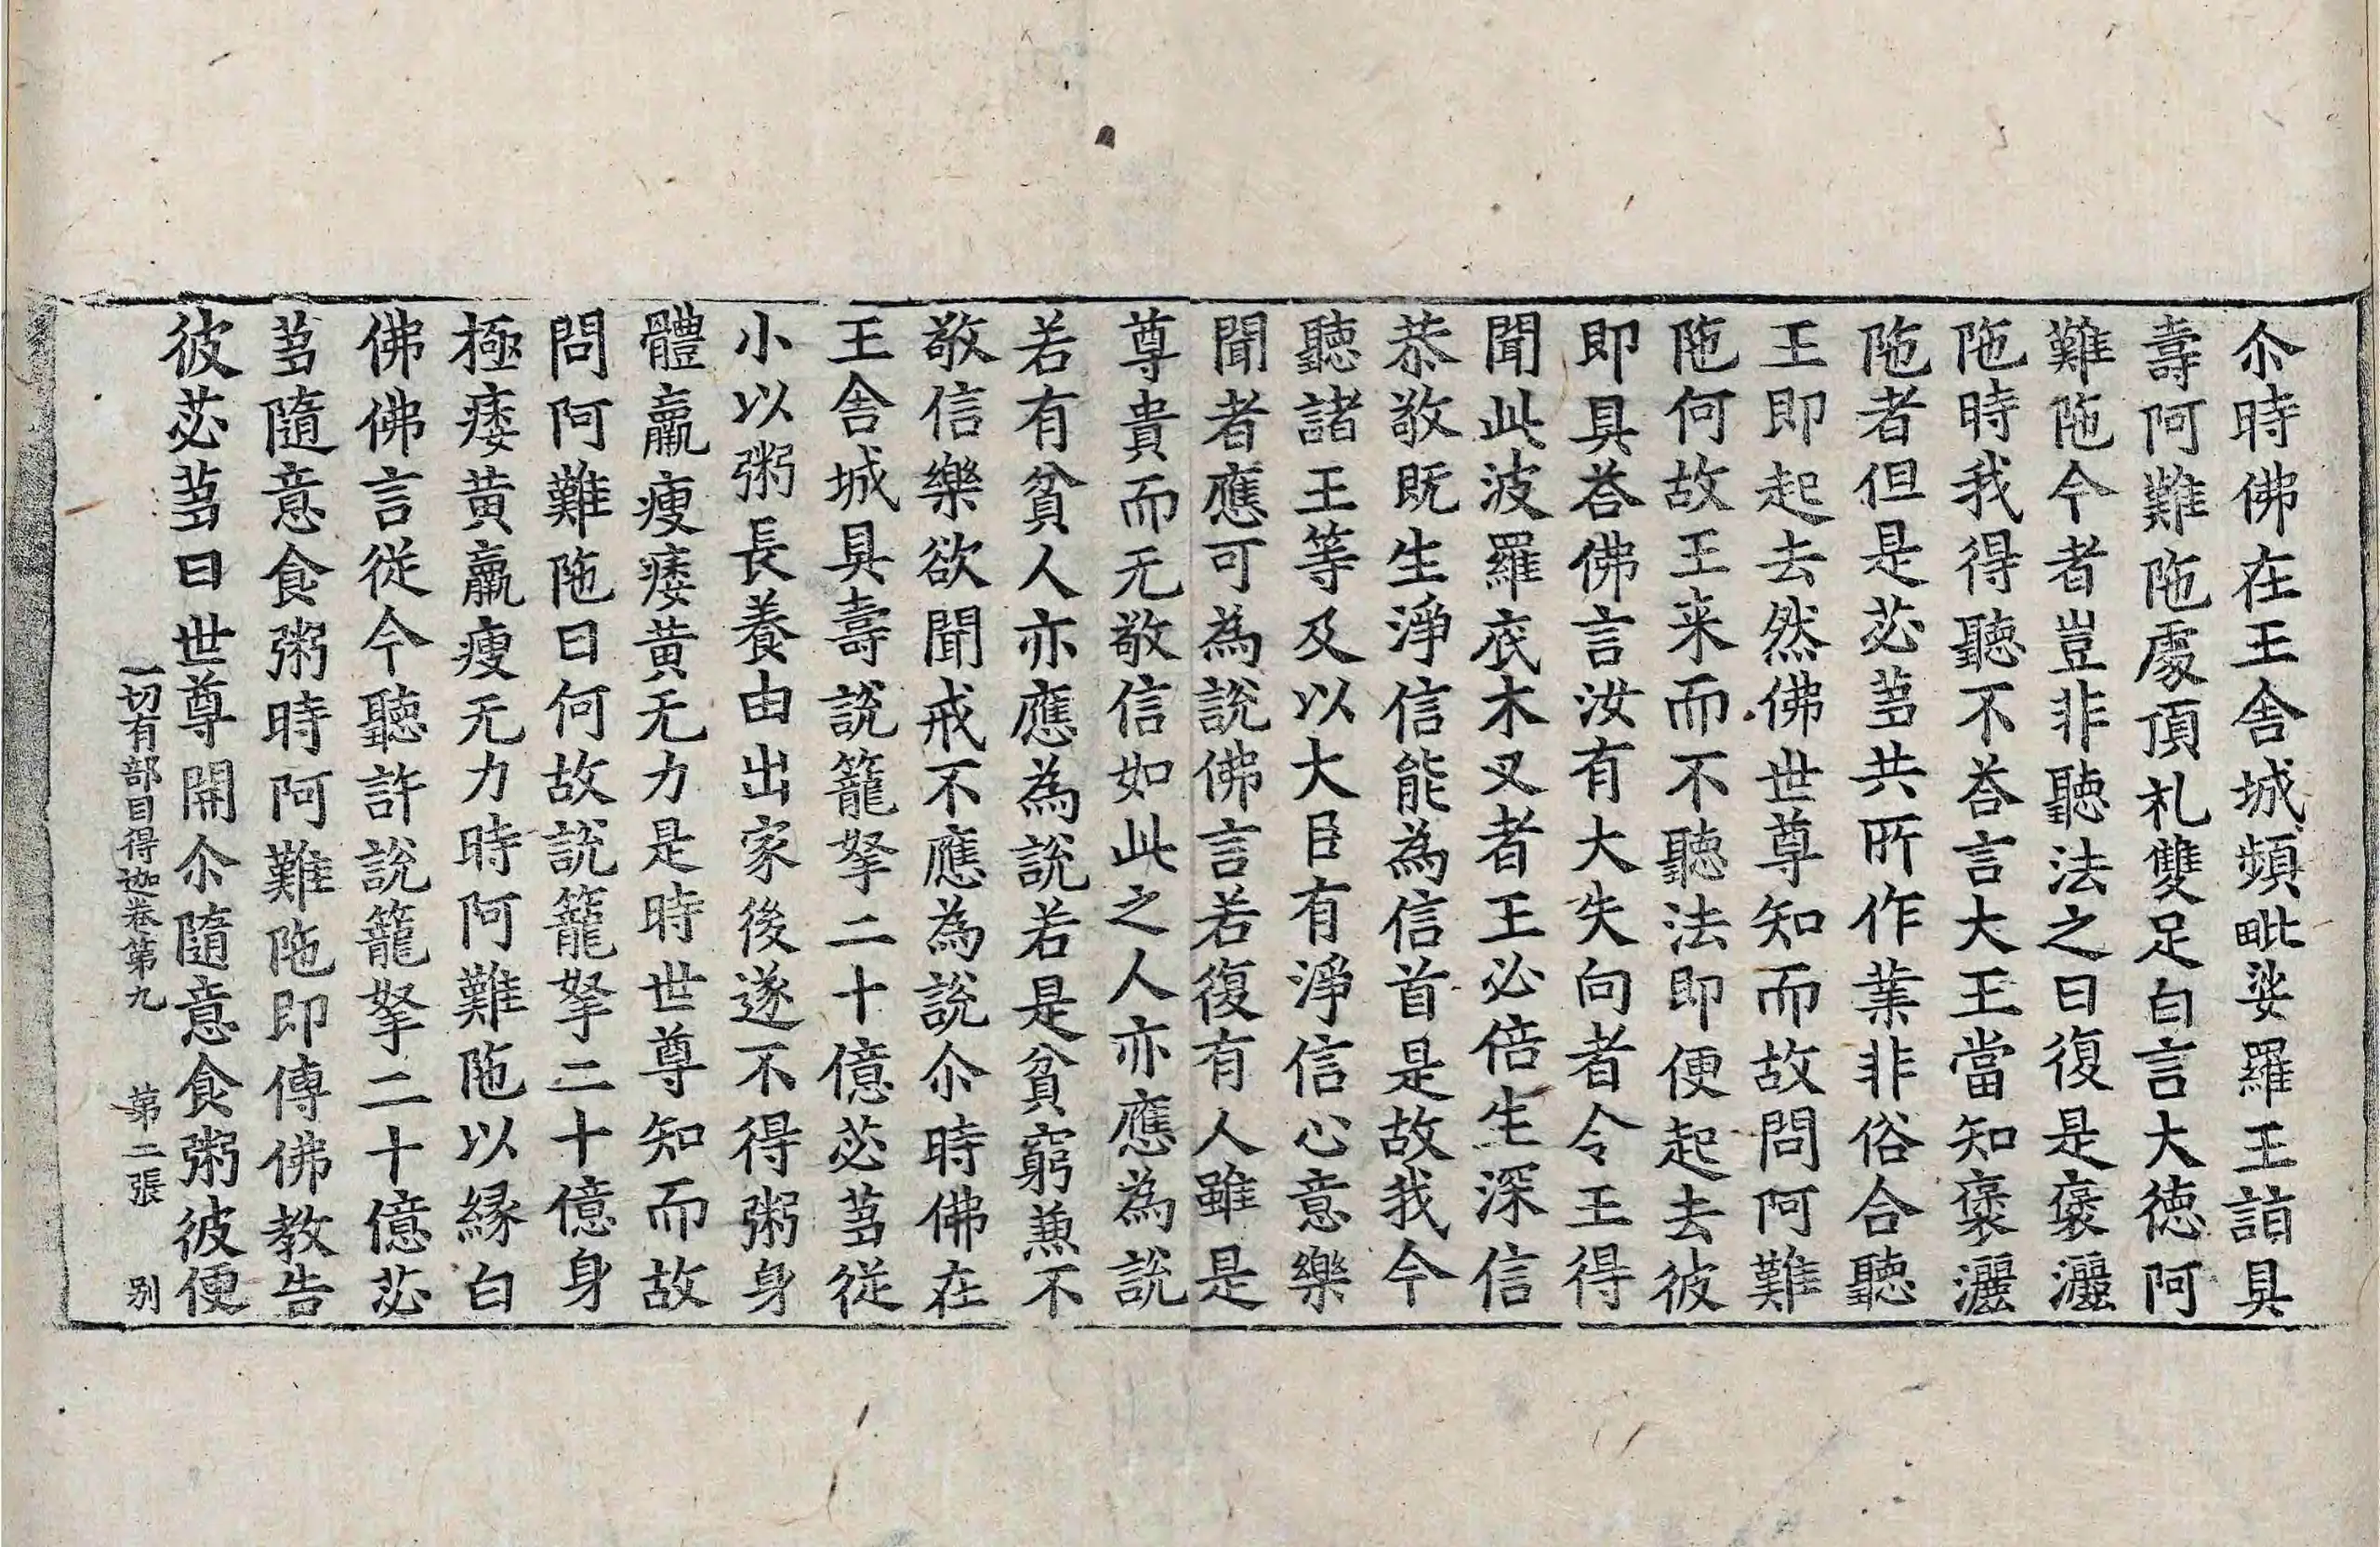 尒時佛在王舍城頻毗娑羅王詣具
壽阿難陁處頂札雙足白言大徳阿
難陁今者豈非聽法之日復是褒灑
陁時我得聽不荅言大王當知褒灑
陁者但是苾蒭共所作業非俗合聽
王即起去然佛世尊知而故問阿難
陁何故王来而不聽法即便起去彼
即具荅佛言汝有大失向者令王得
聞此波羅底木叉者王必倍生深信
恭敬既生淨信能為信首是故我今
聽諸王等及以大臣有淨信心意樂
聞者應可為說佛言若復有人雖是
尊貴而无敬信如此之人亦應為說
若有貧人亦應為說若是貧窮兼不
敬信樂欲聞戒不應為說尒時佛在
王舍城具壽說籠拏二十億苾蒭從
小以粥長養由出家後遂不得粥身
體羸瘦痿黃无力是時世尊知而故
問阿難陁曰何故說籠拏二十億身
極痿黃羸瘦无力時阿難陁以緣白
佛佛言從今聽許說籠拏二十億苾
蒭隨意食粥時阿難陁即傳佛教告
彼苾蒭曰世尊開尒隨意食粥彼便
一切有部目得迦卷第九 第二張 别